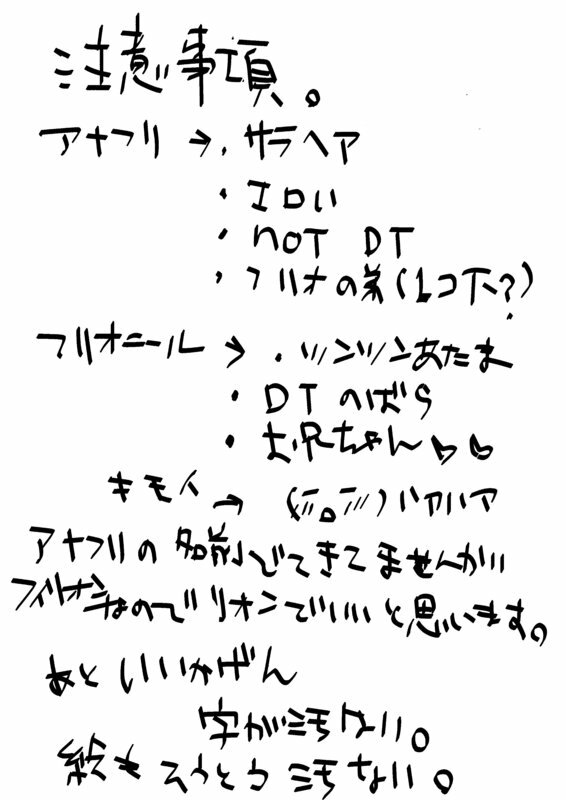 注意事項。
アナフリ → ・サラヘア
・エロい
・noT DT
・フリオの弟(1コ下?)
フリオニール → ・ツンツンあたま
・DT のばら
・お兄ちゃん♥♥
キモイ → (〃゚〃)ハアハア
アナフリの名前でてきてませんがい
フィリオンなのでリオンでいいと思います。
あといいかげん
字が汚ない。
絵もそうとう汚ない。